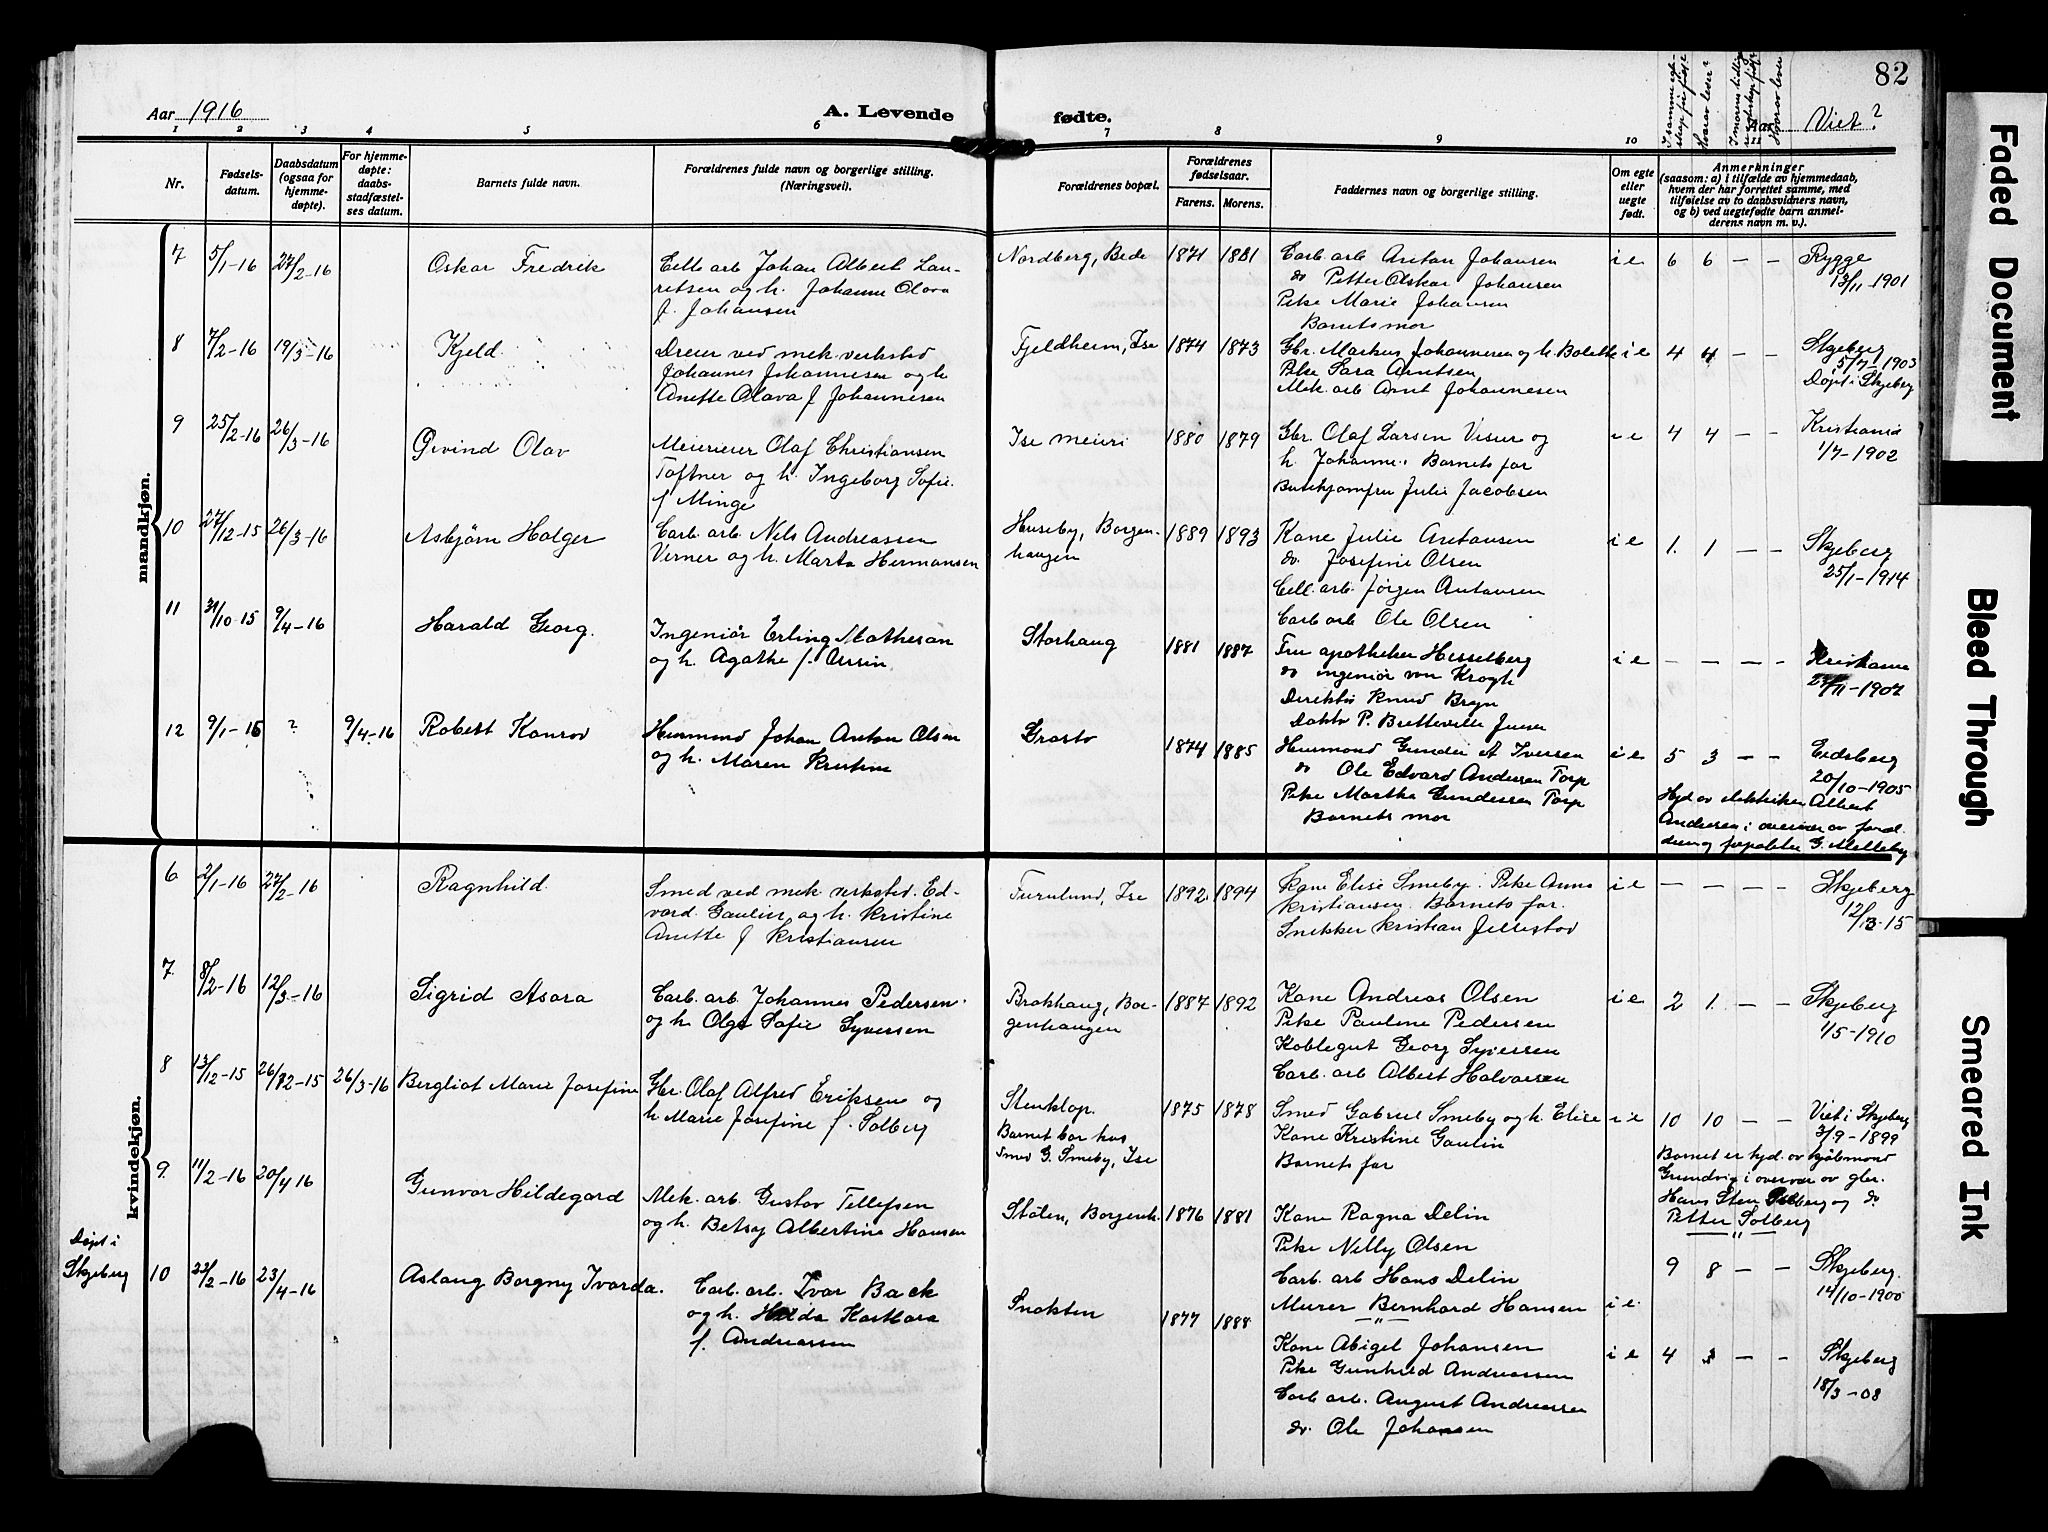 82
Aar 1916
A. Levende fødte.
Viet?
1 2 3 4 5 6 7 8 9 10 11
Nr.
Fødsels-
datum.
Daabsdatum
(ogsaa for
hjemme-
døpte).
For hjemme-
døpte:
daabs-
stadfæstel-
ses datum.
Barnets fulde navn.
Forældrenes fulde navn og borgerlige stilling.
(Næringsvei).
Forældrenes bopæl.
Forældrenes
fødselsaar.
Farens. Morens.
Faddernes navn og borgerlige stilling.
Om egte
eller
uegte
født.
Anmerkninger
(saasom: a) i tilfælde av hjemmedaab,
hvem der har forrettet samme, med
tilføielse av to daabsvidners navn,
og b) ved uegtefødte barn anmel-
derens navn m. v.).
mandkjøn.
7 5/1-16 27/2-16
Oskar Fredrik
Cell. arb Johan Albert Lau-
ritsen og h. Johanne Olava
f. Johansen
Nordberg, Bede
1871 1881
Carb. arb Anton Johansen
do Petter Oskar Johansen
Pike Marie Johansen
Barnets mor
i e 6 6 – –
Rygge
13/11-1901
8 7/2-16 19/3-16
Kjeld
Dreier ved mek. verksted
Johannes Johannesen og h.
Anette Olava f Johannesen
Fjeldheim, Ise
1874 1873
Gbr. Markus Johannesen og h. Bolette
Pike Sara Arntsen
Mek. arb Arnt Johannesen
i e 4 4 – –
Skjeberg
5/7-1903
Døpt i Skjeberg
9 25/2-16 26/3-16
Øivind Olav
Meierier Olaf Christiansen
Toftner og h. Ingeborg Sofie
f. Minge
Ise meieri
1880 1879
Gbr. Olaf Larsen Visur og
h. Johanne. Barnets far
Butikjomfru Julie Jacobsen
i e 4 4 – –
Kristiania
1/7-1902
10 27/12-15 26/3-16
Asbjørn Holger
Carb. arb. Nils Andreassen
Verner og h. Marta Hermansen
Huseby, Borgen-
haugen
1889 1893
Kone Julie Antonsen
do. Josefine Olsen
Cell. arb. Jørgen Antonsen
Carb arb Ole Olsen
i e 1. 1 – –
Skjeberg
25/1-1914
11 31/10-15 9/4-16
Harald Georg.
Ingeniør Erling Mathesan
og h. Agathe f.
Storhaug
1881 1887
Fru apotheker Hesselberg
do ingeniør von Krogh
Direktør Knud Bryn
Doktor P. Bretteville Jensen
i e – – – –
Kristiania
27/11-1907
12 9/1-16 ? 9/4-16
Robert Konrod
Husmand Johan Anton Olsen
og h. Maren Kristine
Grosto
1874 1885
Husmand Gunder A Iversen
do Ole Edvard Andersen Torp
Pike Martha Gundersen Torp
Barnets mor
i e 5 3 – –
Eidsberg
20/10-1905
Hjd. av elektriker Albert
Andresen i overvær av foræl-
drene og G. Melleby
kvindekjøn.
6 2/1-16 27/2-16
Ragnhild.
Smed ved mek. verksted. Ed-
vard. Gaulin og h. Kristine
Anette f Kristiansen
Furulund, Ise
1892 1894
Kone Elise Smeby. Pike Anna
Kristiansen. Barnets far.
Snekker Kristian Jellestad
i e – – – –
Skjeberg
12/12-15
7. 8/2-16 12/3-16
Sigrid Asora
Carb. arb. Johannes Pedersen.
og h. Olga Sofie Syversen
Brokhaug, Bor-
genhaugen
1887 1892
Kone Andreas Olsen
Pike Pauline Pedersen
Koblegut Georg Syversen
Carb. arb Albert Halvorsen
i e 2 1. – –
Skjeberg
1/5-1910
8 13/12-15 26/12-15 26/3-16
Bergliot Marie Josefine
Gbr. Olaf Alfred Eriksen og
h. Marie Josefine f. Solberg
Stenklop.
Barnet bor hos
Smed G. Smeby, Ise
1875 1878
Smed Gabriel Smeby og h. Elise
Kone Kristine Gaulin
Barnets far
i e 10 10 – –
Viet i Skjeberg
3/9-1899
Barnet er hjd. av hjælpemand
Grundvig i overvær av gbr.
Hans Sten Solberg og do
Petter Solberg
9. 11/2-16 20/4 16
Gunvor Hildegard
Mek. arb. Gustav Tellefsen
og h. Betsy Albertine Hansen
Stølen, Borgenh.
1876 1881
Kone Ragna Delin
Pike Nelly Olsen
Carb. arb Hans Delin
Murer Bernhard Hansen
i e. 9 8 – –
Skjeberg.
14/10-1900
Døpt i
Skjeberg
10 22/2-16 23/4-16
Aslaug Borgny Ivarda.
Carb. arb. Ivar Back
og h. Hilda Kastbara
f. Andreassen
Snoksten
1877 1888
Kone Abigel Johansen
Pike Gunhild Andreassen
Carb arb. August Andreassen
do. Ole Johansen
i e 4 3 – –
Skjeberg
18/3-08
Faded Document
Bleed Through
Smeared Ink